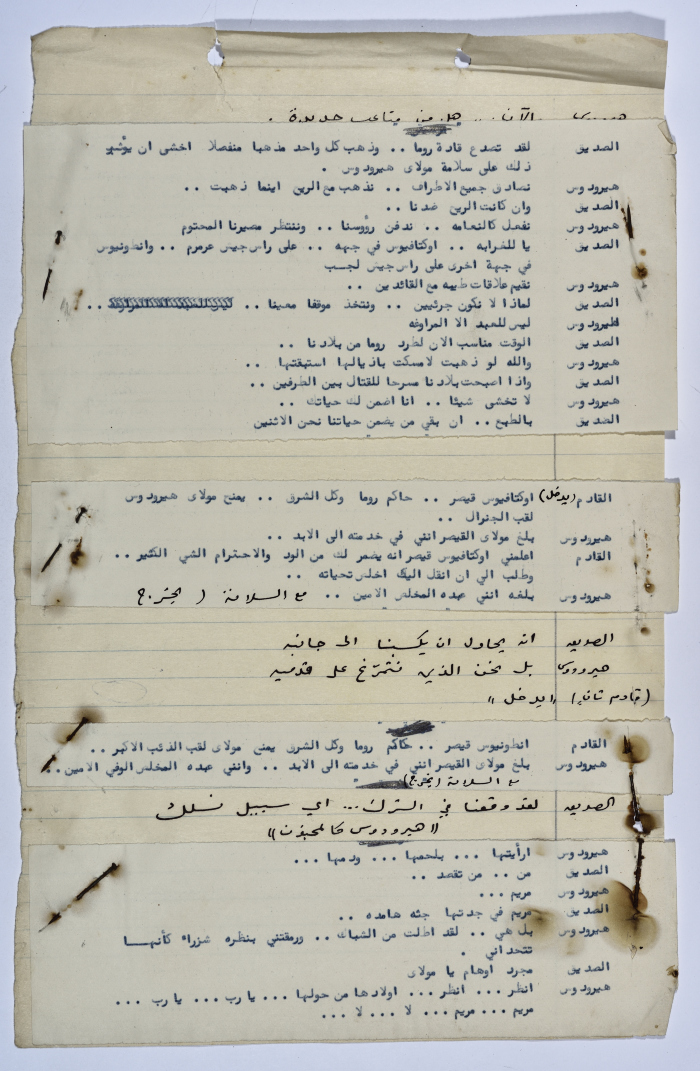 هيرودس الآن ... هل من متاعب جديدة .
الصديق لقد تصدع قادة روما .. وذهب كل واحد مذهبا منفصلا اخشى ان يؤثر
ذلك على سلامة مولاى هيرودوس .
هيرودوس نصادق جميع الاطراف .. نذهب مع الريح اينما ذهبت ..
الصديق وان كانت الريح ضدنا ..
هيرودوس نفعل كالنعامه .. ندفن رؤوسنا .. وننتظر مصيرنا المحتوم
الصديق يا للخرابه .. اوكتافيوس في جهه .. على راس جيش عرمرم .. وانطونيوس
في جهة اخرى على راس جيش لجب
هيرودوس نقيم علاقات طيبه مع القائدين ..
الصديق لماذا لا نكون جرئيين .. ونتخذ موقفا معينا .. ..
هيرودوس ليس للعبد الا المراوغه
الصديق الوقت مناسب الان لطرد روما من بلادنا ..
هيرودوس والله لو ذهبت لامسكت باذيالها استبقتها ..
الصديق واذا اصبحت بلادنا مسرحا للقتال بين الطرفين ..
هيرودوس لا تخشى شيئا .. انا اضمن لك حياتك ..
الصديق بالطبع .. ان بقي من يضمن حياتنا نحن الاثنين
القادم (يدخل) اوكتافيوس قيصر .. حاكم روما وكل الشرق .. يمنح مولاى هيرودوس
لقب الجنرال ..
هيرودوس بلغ مولاى القيصر انني في خدمته الى الابد ..
القادم اعلمني اوكتافيوس قيصر انه يضمر لك من الود والاحترام الشي الكثير ..
وطلب الي ان انقل اليك اخلص تحياته ..
هيرودوس بلغه انني عبده المخلص الامين .. مع السلامة ( يخرج )
الصديق انه يحاول ان يكسبنا الى جانبه
هيرودس بل نحن الذين نتمرغ على قدميه
(قادم ثاني) "يدخل"
القادم انطونيوس قيصر .. حاكم روما وكل الشرق يمنح مولاى لقب الذئب الاكبر ..
هيرودوس بلغ مولاى القيصر انني في خدمته الى الابد .. وانني عبده المخلص الوفي الامين ..
مع السلامة (يخرج)
الصديق لقد وقعنا في الشرك ... اي سبيل نسلك
"(هيرودوس كالمجنون)"
هيرودوس ارأيتها ... بلحمها ... ودمها ...
الصديق من .. من تقصد ..
هيرودوس مريم ...
الصديق مريم في جدتها جثه هامده ..
هيرودوس بل هي .. لقد اطلت من الشباك .. ورمقتني بنظره شزراء كأنهـــا
تتحداني .
الصديق مجرد أوهام يا مولاى
هيرودوس انظر ... انظر ... اولادها من حولها ... يا رب ... يا رب ...
مريم ... مريم ... لا ... لا ...